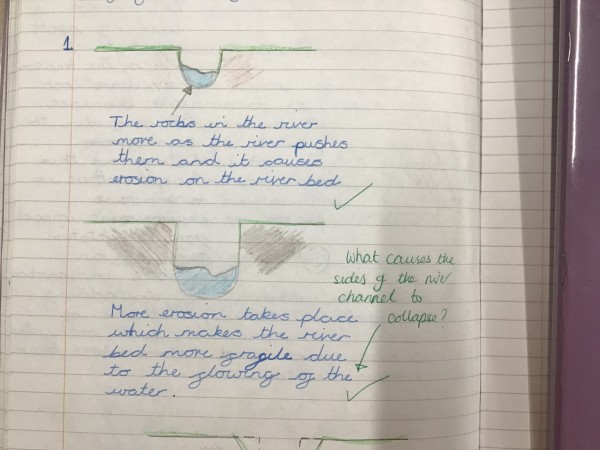 1.
The rocks in the river
move as the river pushes
them and it causes
erosion on the river bed
What causes the
sides of the river
channel to
collapse?
More erosion takes place
which makes the river
bed more fragile due
to the flowing of the
water.